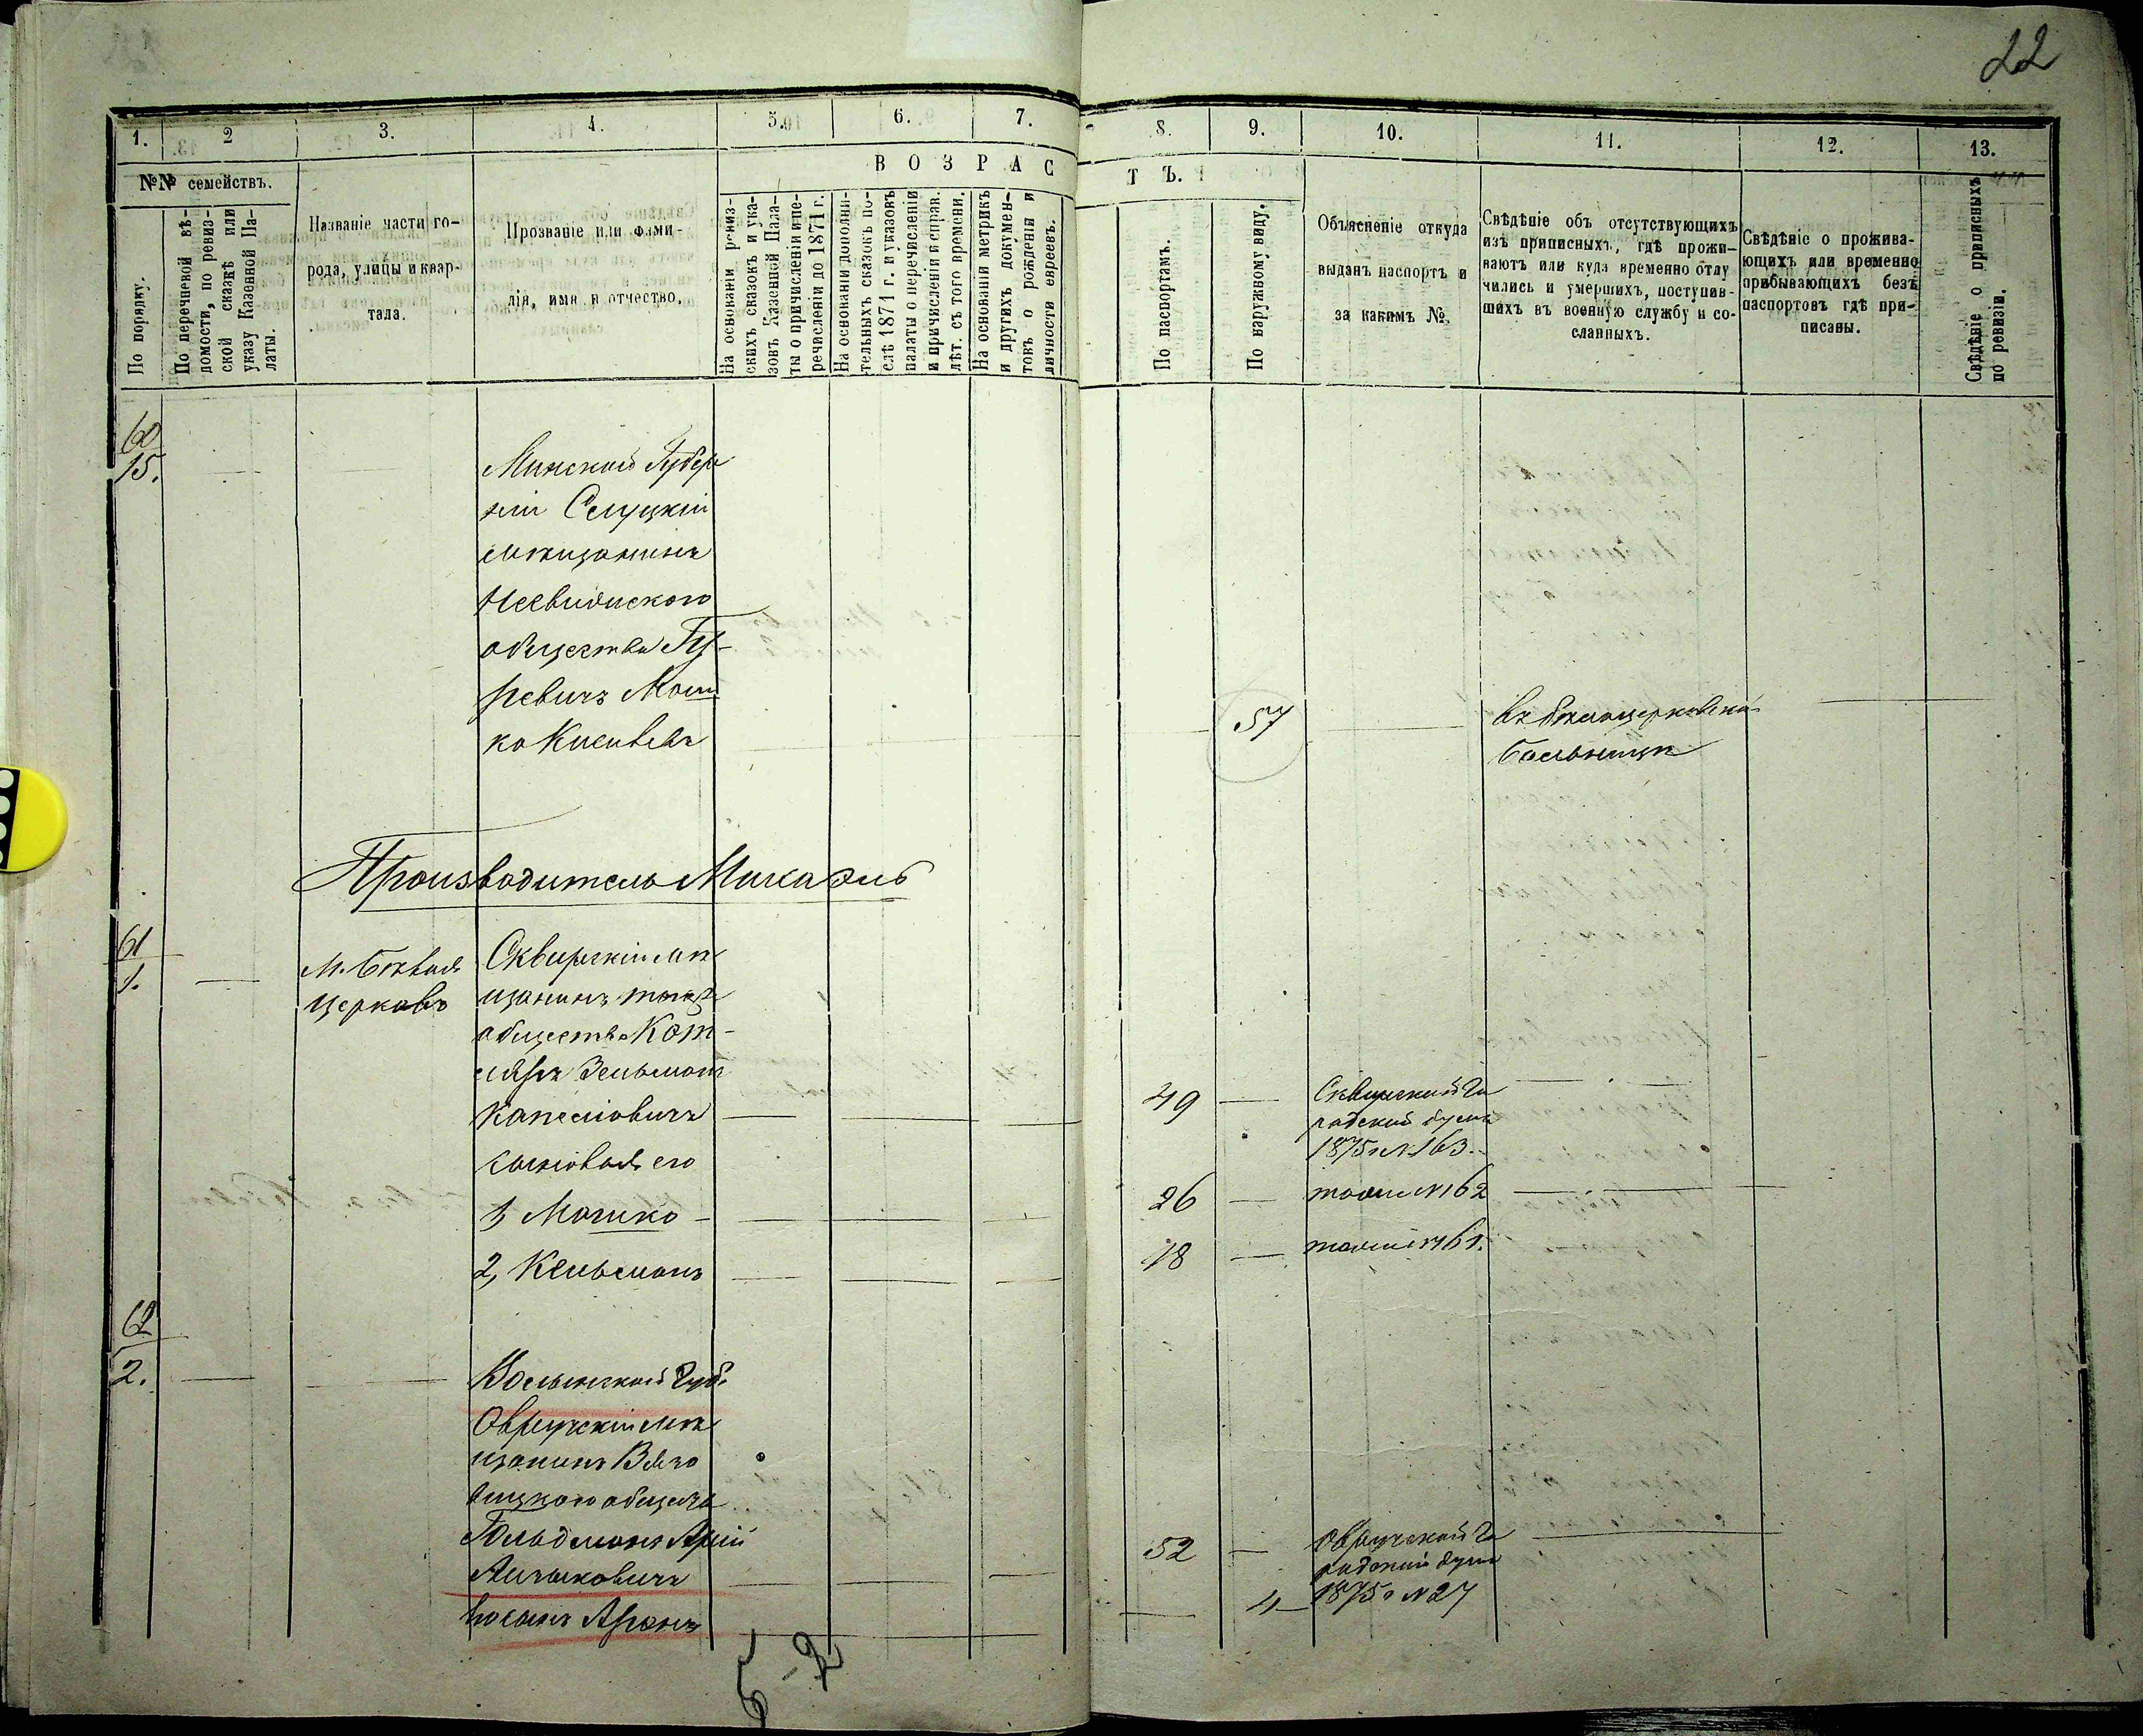 22
1. 2 3. 4. 5. 6. 7. 8. 9. 10. 11. 12. 13.
№№ семействъ.
По порядку.
По перечневой вѣ-
домости, по ревиз-
ской сказкѣ или
указу Казенной Па-
латы.
Названіе части го-
рода, улицы и квар-
тала.
Прозваніе или фами-
лія, имя и отчество.
ВОЗРАСТЪ.
На основаніи ревиз-
скихъ сказокъ и ука-
зовъ Казенной Пала-
ты о причисленіи и пе-
речисленіи до 1871 г.
На основаніи дополни-
тельныхъ сказокъ по-
слѣ 1871 г. и указовъ
палаты о перечисленіи
и причисленіи и справ.
лѣт. съ того времени.
На основаніи метрикъ
и другихъ докумен-
товъ о рожденіи и
личности евреевъ.
По паспортамъ.
По наружному виду.
Объясненіе откуда
выданъ паспортъ и
за какимъ №.
Свѣдѣніе объ отсутствующихъ
изъ приписныхъ, гдѣ прожи-
ваютъ или куда временно отлу
чились и умершихъ, поступив-
шихъ въ военную службу и со-
сланныхъ.
Свѣдѣніе о прожива-
ющихъ или временно
прибывающихъ безъ
паспортовъ гдѣ при-
писаны.
Свѣдѣніе о приписныхъ
по ревизіи.
60
15.
Минской Губер
ніи Слуцкій
мѣщанинъ
Несвижского
общества Гу-
ревичъ Мош
ко
57
въ бѣлоцерковской
больницѣ
Производитель Микаэль
61
1.
М. Бѣлая
Церковь
Сквирскій мѣ
щанинъ того же
общества Кот-
ляръ Зельман
сыновья его
1, Мошко
2, Кельманъ
49
Сквирской Го
родской думы
1875 г. № 163.
26
тоже № 162
18
тоже № 161.
62
2.
Волынской Губ.
Овручскій мѣ
щанинъ
общества
Гольдманъ
Ицьковичъ
сынъ Аронъ
52
Овручской Го
родской думы
1875 г № 27
4
5 - 2